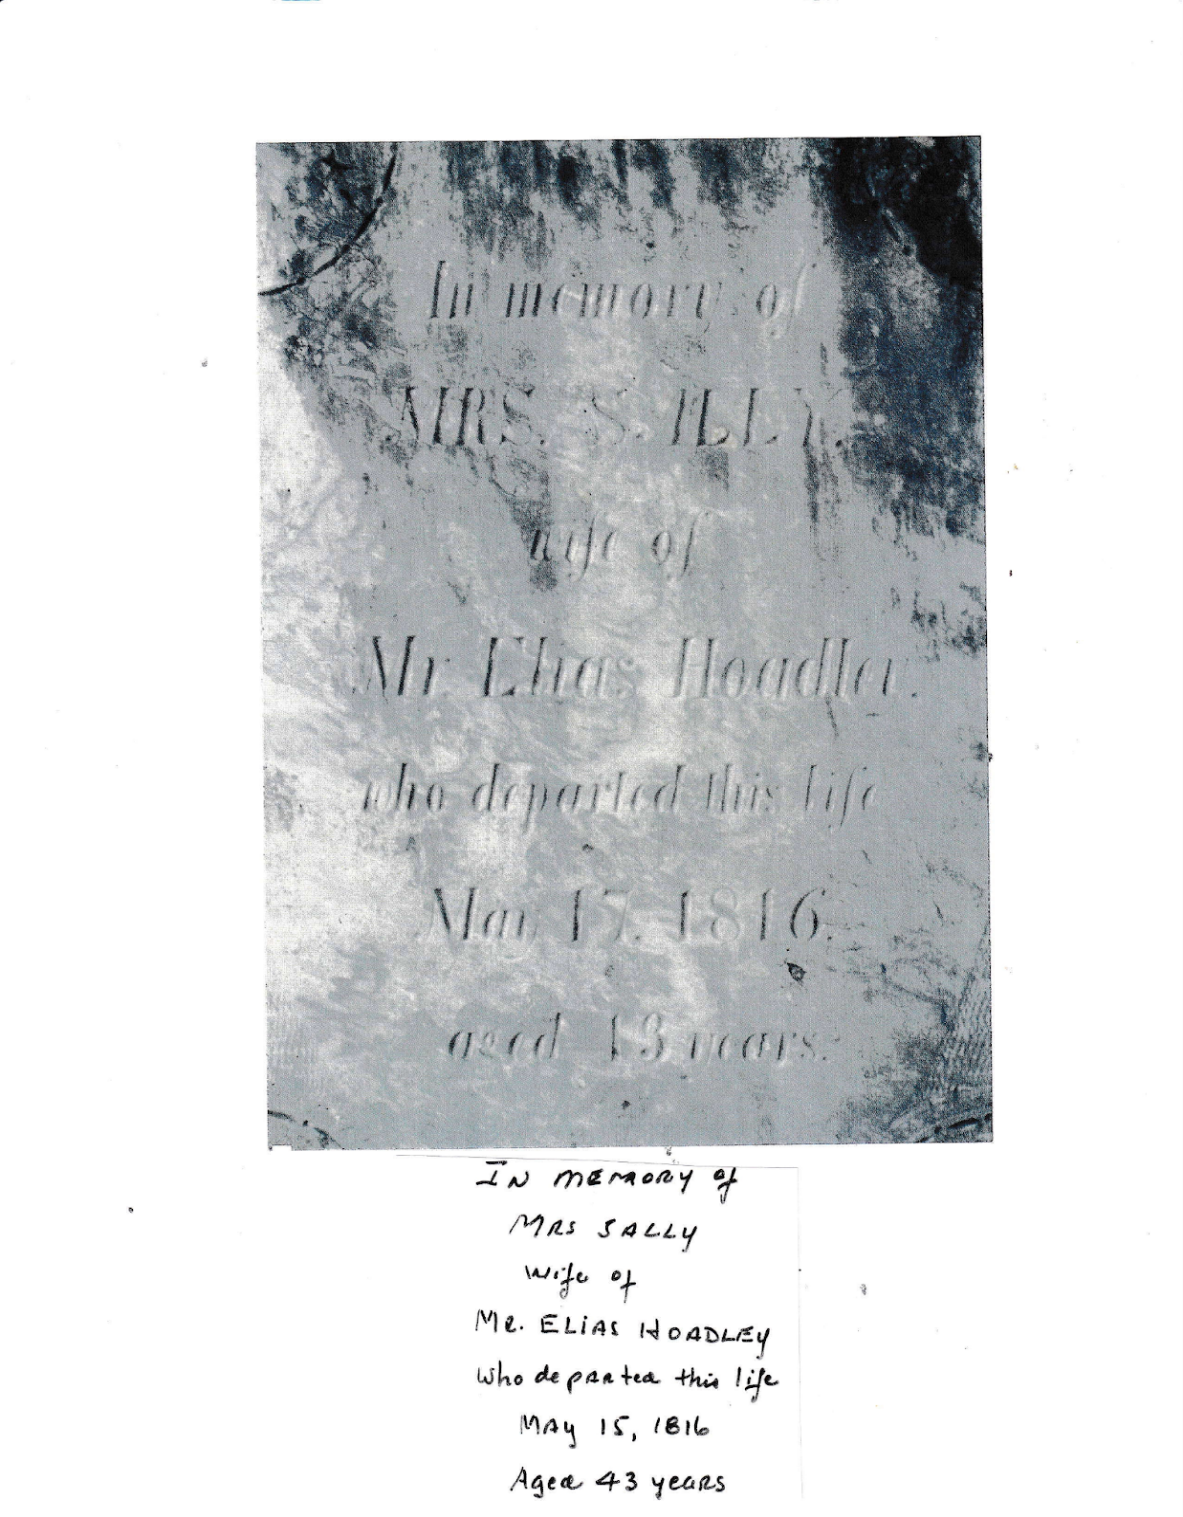 In memory of
MRS. SALLY.
wife of
Mr. Elias Hoadley.
who departed this life
May 17. 1816.
aged 43 years.
IN MEMORY of
MRS SALLY
Wife of
MR. ELIAS HOADLEY
Who departed this life
MAY 15, 1816
Aged 43 years